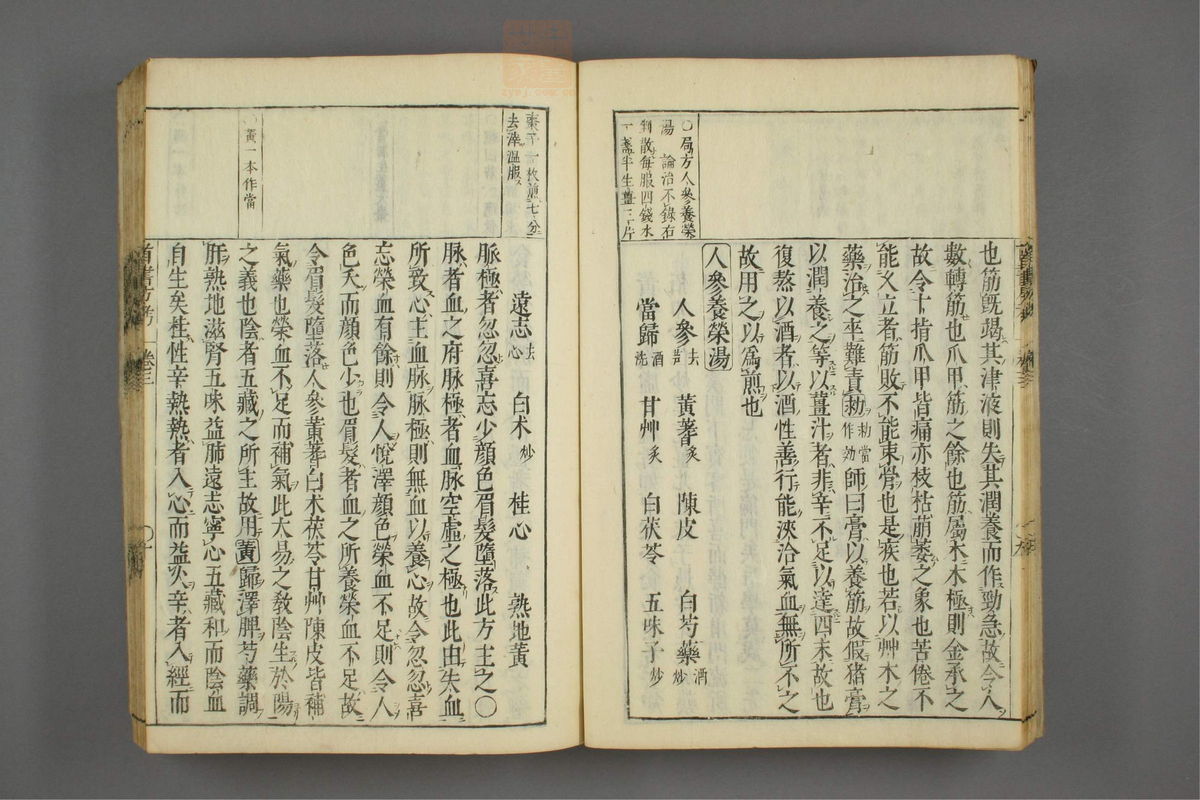 〇局方人參養榮
湯　論治不錄右
剉散每服四錢水
一盞半生薑三片
也筋旣竭其津液則失其潤養而作勁急故令人
數轉筋也爪甲筋之餘也筋屬木木極則金承之
故令十指爪甲皆痛亦枝枯萠萎之象也苦倦不
能久立者筋敗不能束骨也是疾也若以艸木之
藥治之卒難責効 効當作効 師曰膏以養筋故假猪膏
以潤養之等以薑汁者非辛不足以達四末故也
復熬以酒者以酒性善行能浹洽氣血無所不之
故用之以爲煎也
人參養榮湯
人參 去芦 黃蓍 炙 陳皮 白芍藥 酒炒
當歸 酒洗 甘艸 炙 白茯苓 五味子 炒
棗子一枚煎七分
去滓溫服
〇黃一本作當
遠志 去心 白术 炒 桂心 熟地黃
脈極者忽忽喜忘少顔色眉髮墮落此方主之〇
脉者血之府脉極者血脉空虛之極也此由失血
所致心主血脉脉極則無血以養心故令忽忽喜
忘榮血有餘則令人悅澤顔色榮血不足則令人
色夭而顔色少也眉髮者血之所養榮血不足故
令眉髮墮落人參黃蓍白术茯苓甘艸陳皮皆補
氣藥也榮血不足而補氣此大易之敎陰生於陽
之義也陰者五藏之所主故用黃歸澤脾芍藥調
肝熟地滋腎五味益肺遠志寧心五藏和而陰血
自生矣桂性辛熱熱者入心而益火辛者入經而
首書方考　卷三